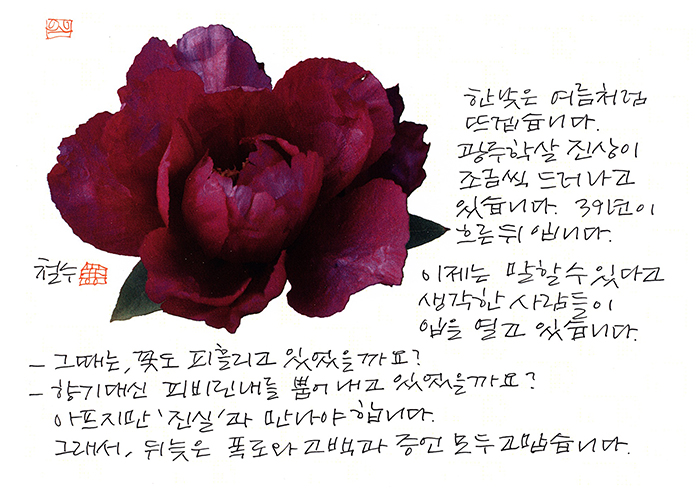 한낮은 여름처럼
뜨겁습니다.
광주학살 진상이
조금씩 드러나고
있습니다. 39년이
흐른뒤 입니다.
이제는 말할수있다고
생각한 사람들이
입을 열고 있습니다.
철수
– 그때는, 꽃도 피흘리고 있었을까요?
– 향기대신 피비린내를 뿜어내고 있었을까요?
아프지만 '진실'과 만나야 합니다.
그래서, 뒤늦은 폭로와 고백과 증언 모두 고맙습니다.